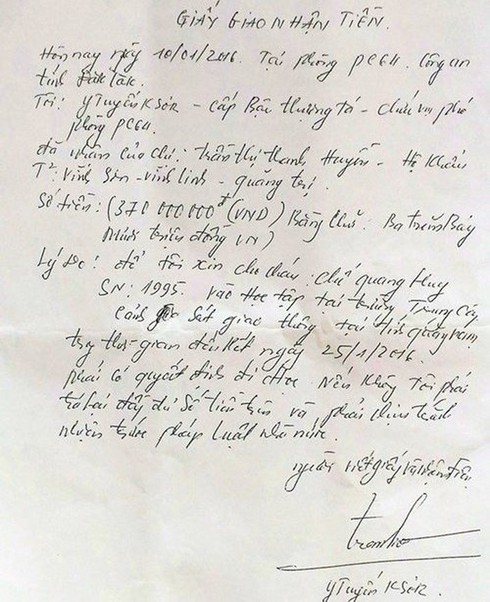 GIẤY GIAO NHẬN TIỀN.
Hôm nay ngày 10/01/2016. Tại phòng PC64. Công an
tỉnh Đắk Lắk.
Tôi: Y Tuyến KSƠR - Cấp Bậc thượng tá - chức vụ phó
phòng PC64.
đã nhận của chị: Trần thị thanh Huyền - Hộ khẩu
T2: Vĩnh Sơn - vĩnh linh - quảng trị.
Số tiền: (370 000 000đ (VND) Bằng chữ: Ba trăm Bảy
mươi triệu đồng VN)
Lý do: để tôi xin cho cháu: chế quang Huy
SN: 1995. vào Học tập tại trường Trung Cấp
Cảnh sát giao thông tại tỉnh quảng nam
thời gian đến hết ngày 25/1/2016.
phải có quyết định đi Học. Nếu Không tôi phải
trả lại đầy đủ Số tiền trên và phải chịu trách
nhiệm trước pháp luật nhà nước.
người viết giấy và nhận tiền
Y Tuyến KSƠR.